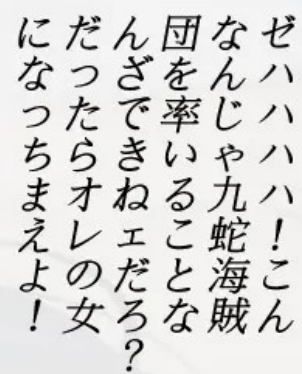 ゼハハハハ！こん
なんじゃ九蛇海賊
団を率いることな
んざできねェだろ？
だったらオレの女
になっちまえよ！